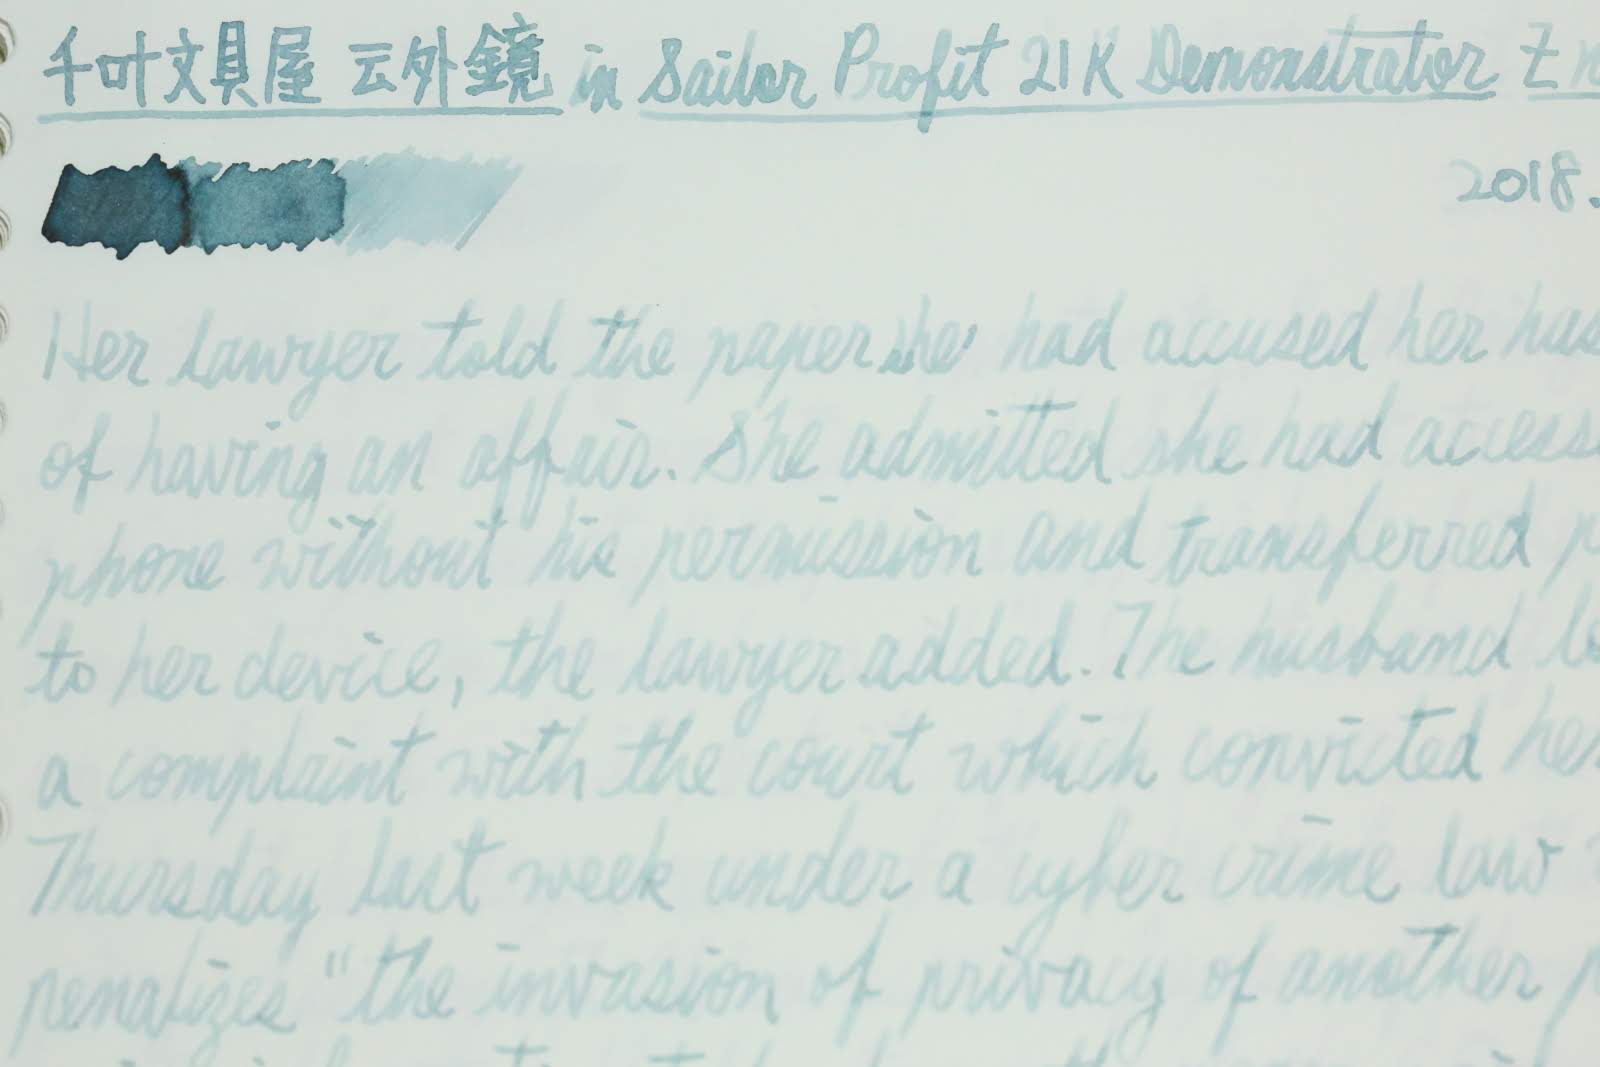 千叶文具屋 云外鏡 in Sailor Profit 21K Demonstrator Z
2018.
Her lawyer told the paper she had accused her
of having an affair. She admitted she had
phone without his permission and transferred
to her device, the lawyer added. The husband
a complaint with the court which convicted her
Thursday last week under a cyber crime law
penalizes "the invasion of privacy of another